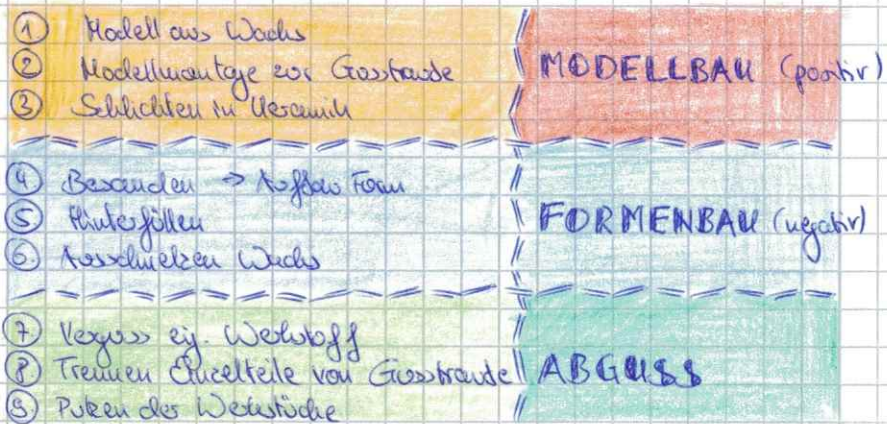 ① Modell aus Wachs
② Modellmontage zur Gusstraube
③ Schlichten in Keramik
MODELLBAU (positiv)
④ Besanden → Aufbau Form
⑤ Hinterfüllen
⑥ Ausschmelzen Wachs
FORMENBAU (negativ)
⑦ Verguss eig. Werkstoff
⑧ Trennen Einzelteile von Gusstraube
⑨ Putzen der Werkstücke
ABGUSS